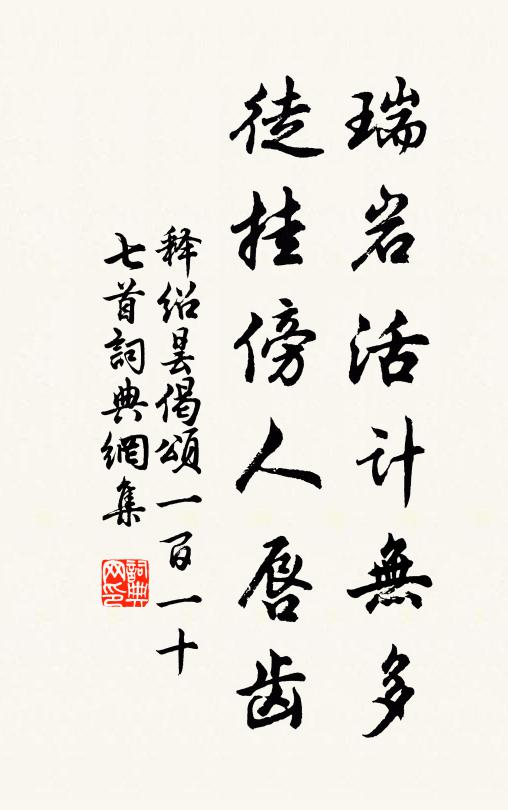 瑞岩活计無多
徒挂傍人唇齿
释绍昙偈颂一百一十
七首詞典網集
詞典
网印